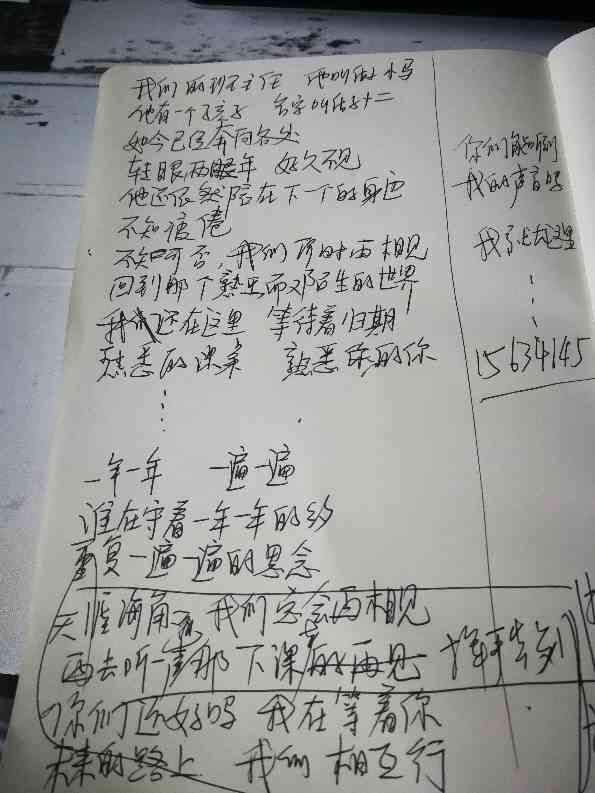 我们的班主任 他叫做小马
他有一个孩子 名字叫做十二
如今已经奔向各处
转眼两年 好久不见
他还依然陪在下一个的身边
不知疲倦
不知可否，我们何时再相见
回到那个熟悉而又陌生的世界
我们还在这里 等待着归期
熟悉的课桌 熟悉的你
一年一年 一遍一遍
谁在守着一年一年的约
重复一遍一遍的思念
天涯海角 我们总会再相见
再去听一声那下课的再见
你们还好吗 我在等着你
未来的路上 我们相互行
你们能听到
我的声音吗
我还在这里
15634145